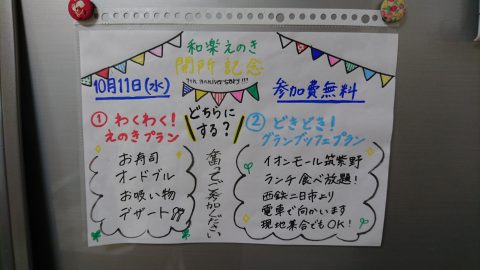 和楽えのき
開所記念
7th anniversary!!!
10月11日(水)
参加費無料
どちらに
する?
① わくわく!
えのきプラン
お寿司
オードブル
お吸い物
デザート
奮ってご参加ください
② どきどき!
グランブッフェプラン
イオンモール筑紫野
ランチ食べ放題!
西鉄二日市より
電車で向かいます
現地集合でもOK!